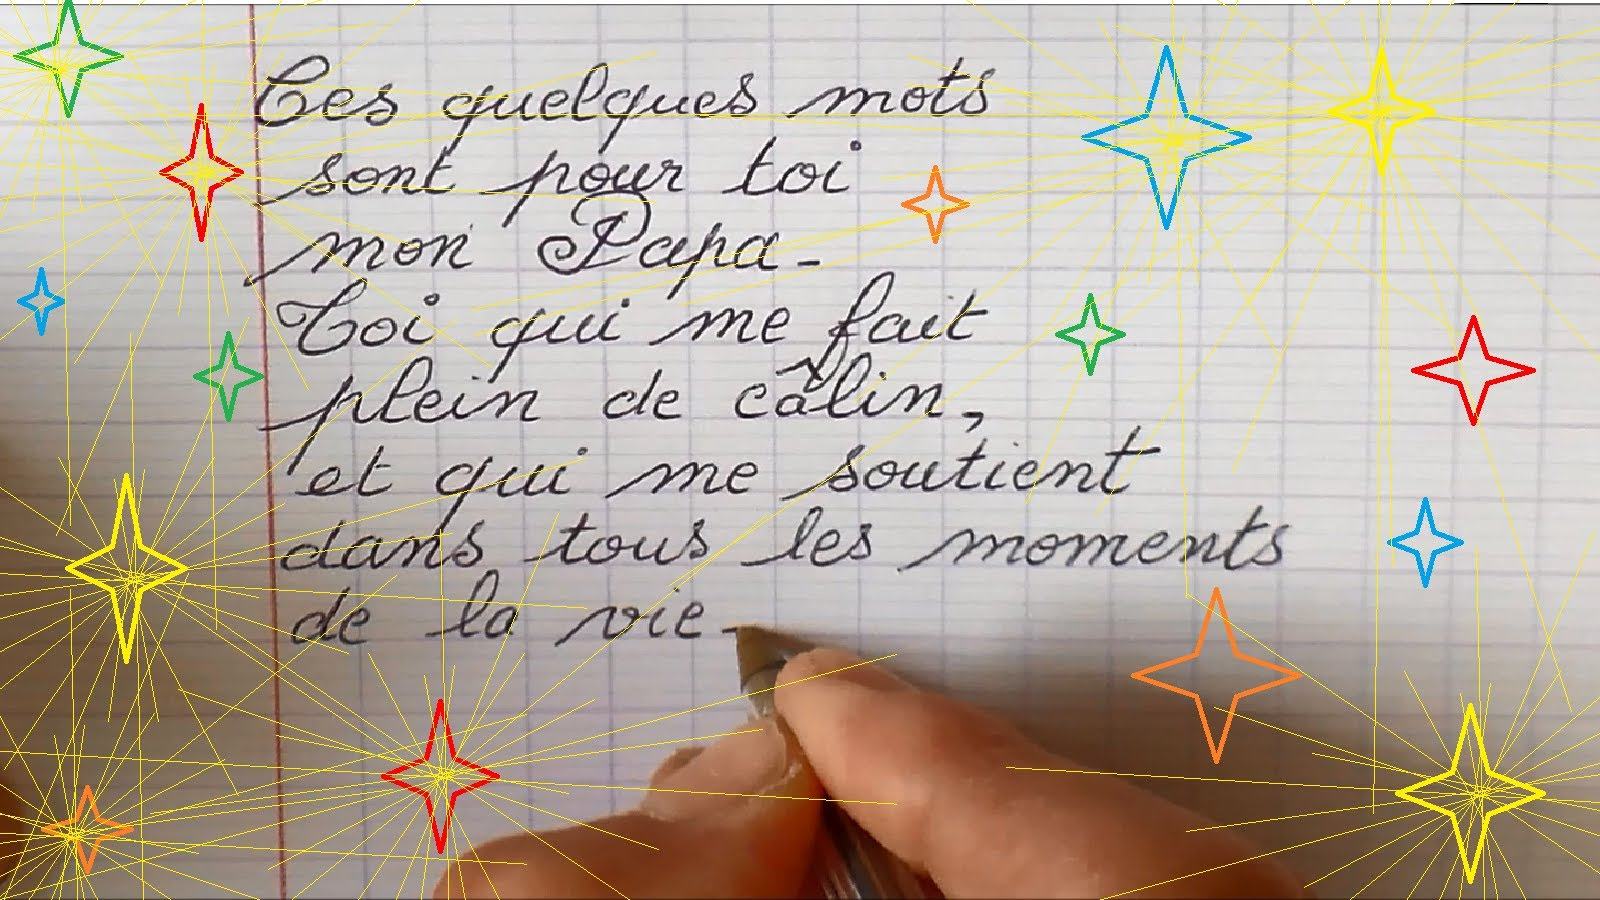 Ces quelques mots
sont pour toi
mon Papa.
Toi qui me fait
plein de câlin,
et qui me soutient
dans tous les moments
de la vie.